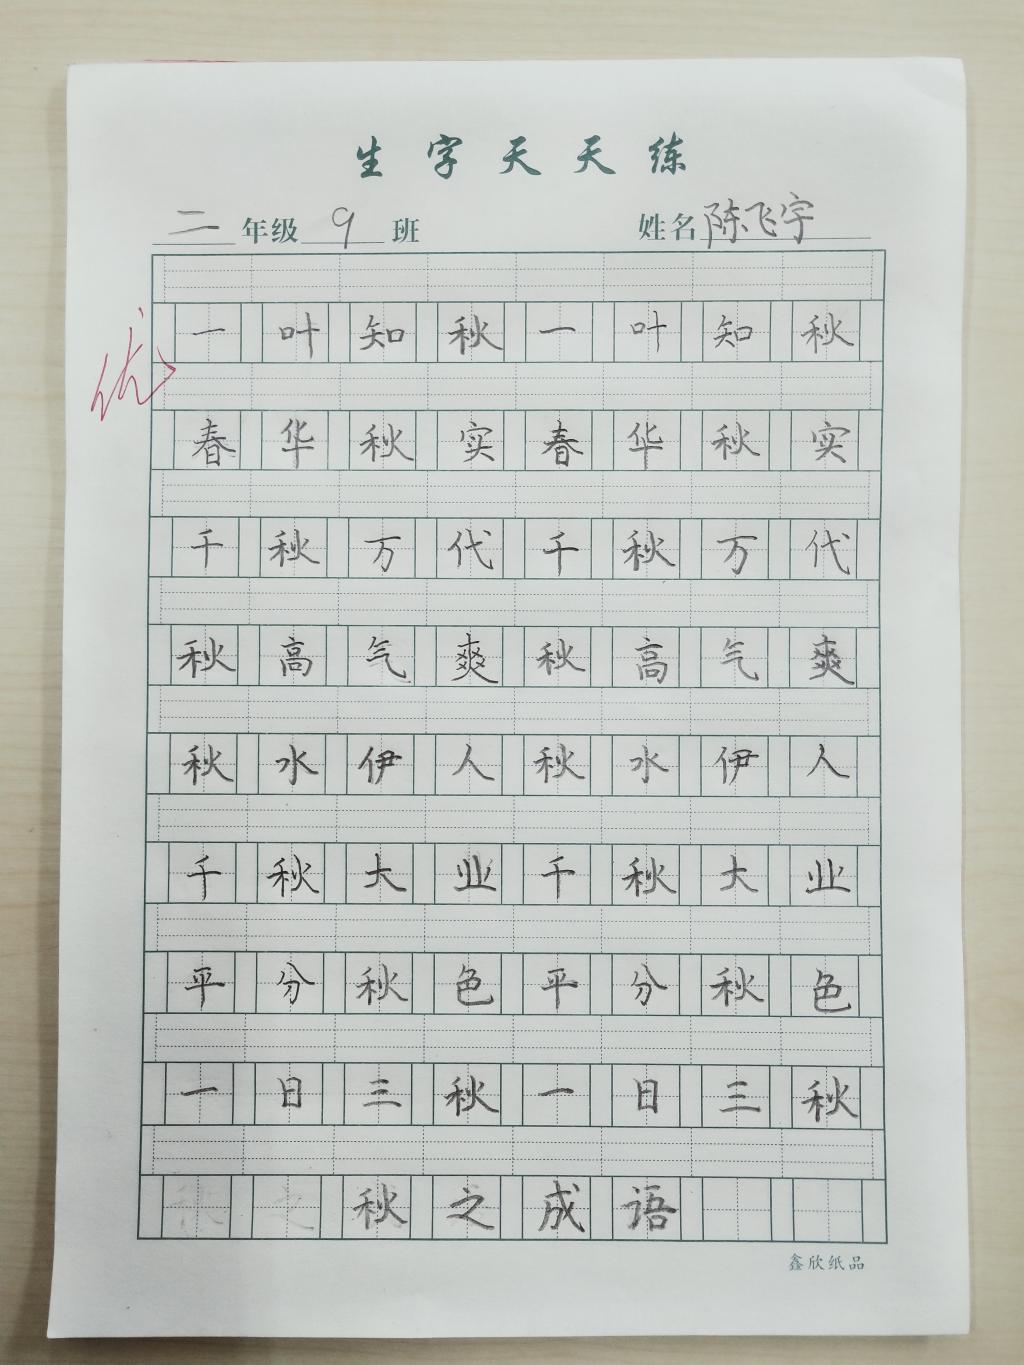 生字天天练
二年级9班 姓名陈飞宇
一叶知秋一叶知秋
优
春华秋实春华秋实
千秋万代千秋万代
秋高气爽秋高气爽
秋水伊人秋水伊人
千秋大业千秋大业
平分秋色平分秋色
一日三秋一日三秋
秋之成语
鑫欣纸品